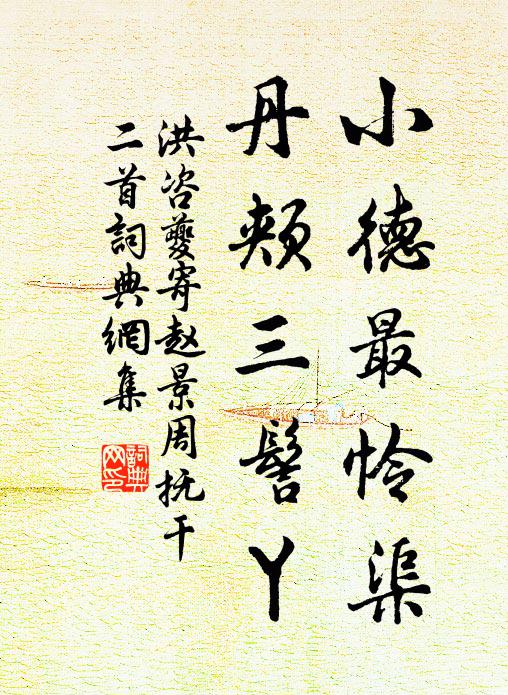 小德最怜渠
丹颊三髻丫
洪咨夔寄赵景周抚干
二首詞典網集
詞典网印